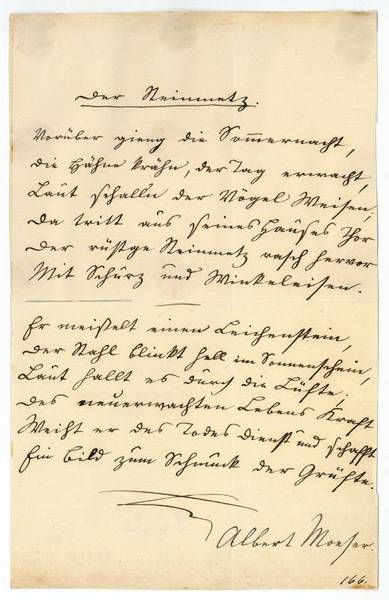 Der Steinmetz.
Vorüber gieng die Sommernacht,
Die Hähne krähn, der Tag erwacht,
Laut schalln der Vögel Weisen,
Da tritt aus seines Hauses Thor
Der rüstge Steinmetz rasch hervor
Mit Schurz und Winkeleisen.
Er meißelt einen Leichenstein,
Der Stahl blinkt hell im Sonnenschein,
Laut hallt es durch die Lüfte;
Des neuerwachten Lebens Kraft
Weiht er des Todes Dienst und schafft
Ein Bild zum Schmuck der Grüfte.
Albert Moeser.
166.